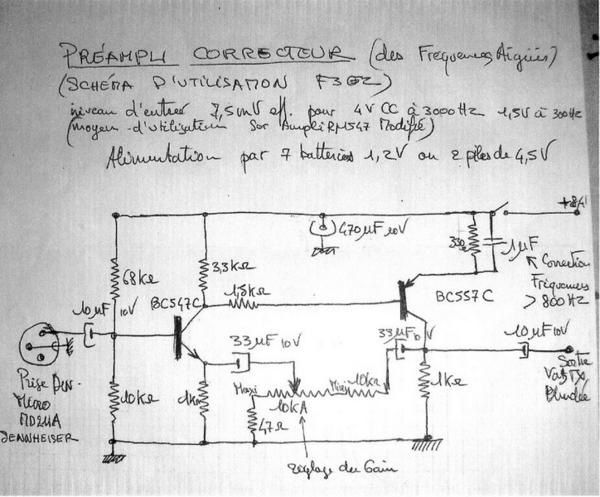 PRÉAMPLI CORRECTEUR (des Fréquences Aigües)
(SCHÉMA D'UTILISATION F3GZ)
niveau d'entrer 7,5mV eff. pour 4V CC à 3000Hz 1,5V à 300Hz
(moyen d'utilisation Sor Ampli RM547 Modifié)
Alimentation par 7 batteries 1,2V ou 2 piles de 4,5V
470µF 10V
33Ω
1µF
Correction
Fréquences
> 800Hz
68kΩ
3,3kΩ
1,8kΩ
BC547C
BC557C
10µF
10V
33µF 10V
33µF
10µF 10V
Sortie
Blindée
Prise Din
Micro
MD211A
SENNHEISER
10kΩ
1kΩ
Maxi
Mini
10kΩ
10kA
47Ω
1kΩ
réglage du Gain